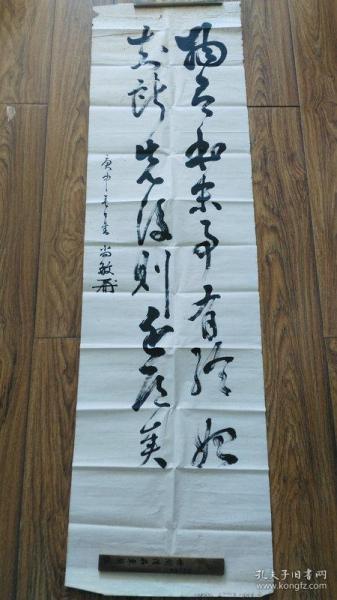 物有本末事有终始
知所先後则近道矣
庚申
尚敏
孔夫子旧书网
www.kongfz.com